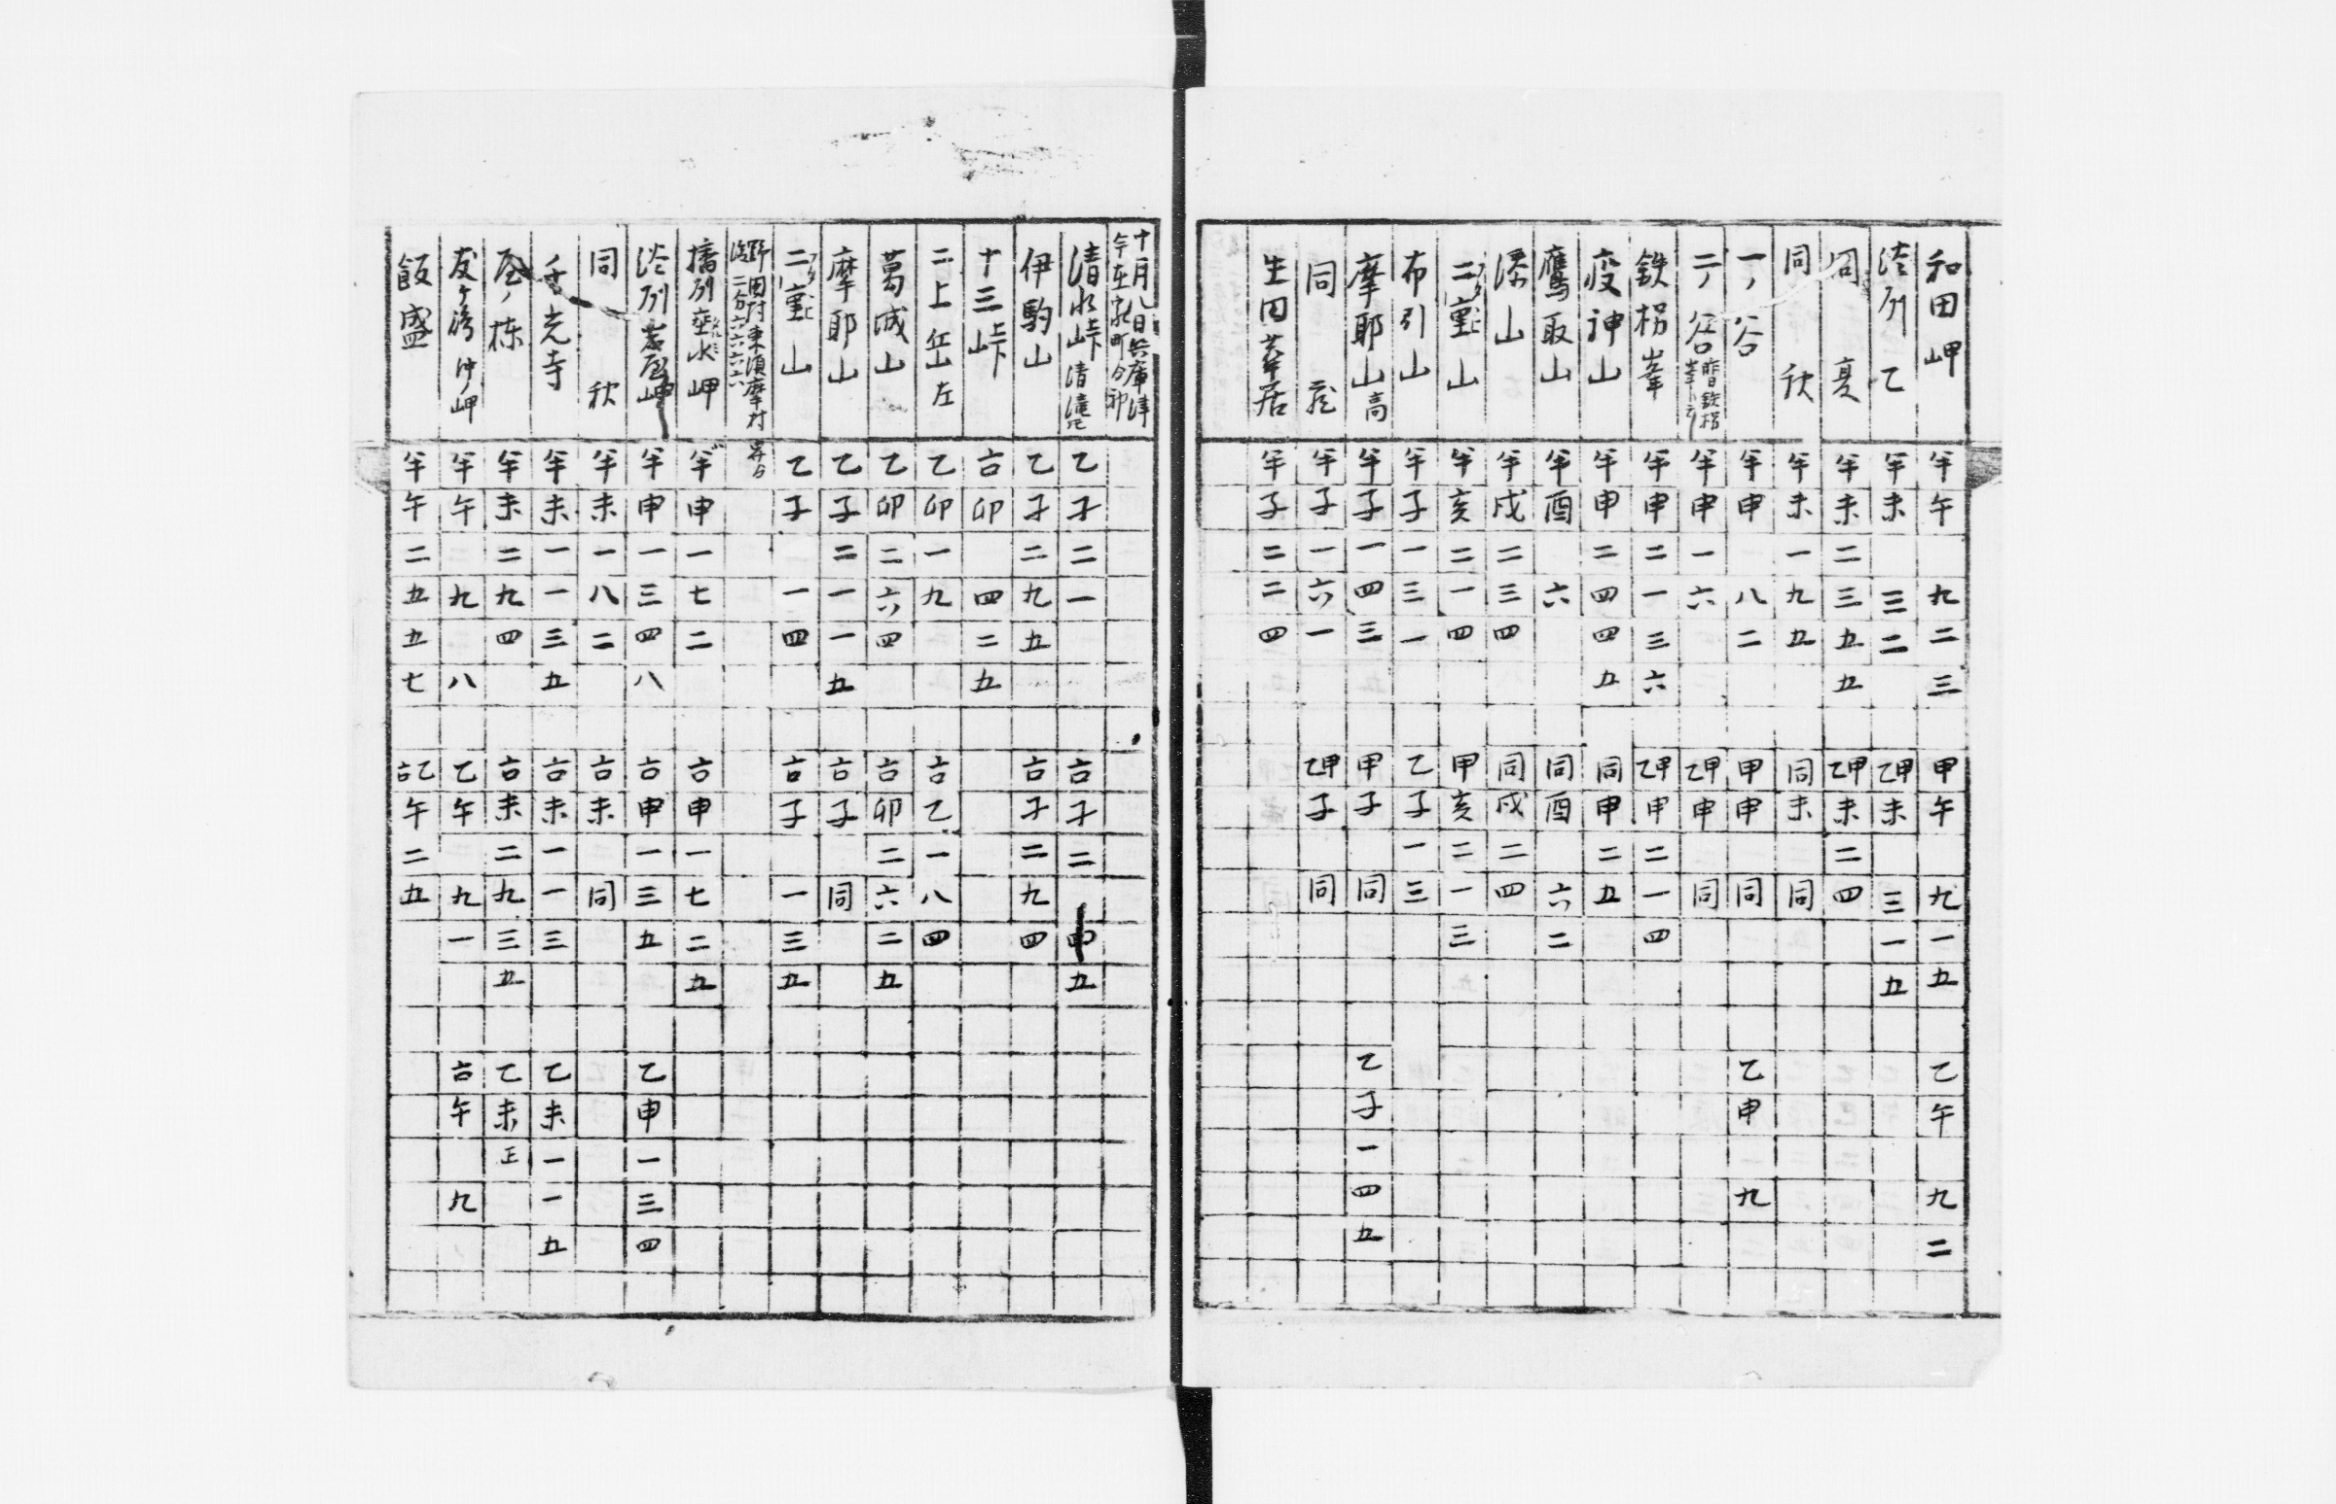 和田岬 半午 九二三 甲午 九一五 乙午 九二
淡刕 乙 半未 三二 乙甲未 三一五
同 夏 半未二三五五 乙甲未二四
同 秋 半未一九五 同未 同
一ノ谷 半申 八二 甲申 同 乙申 九
二ノ谷 半申一六 乙甲申 同
鉄柺峯 半申二一三六 乙甲申二一四
疫神山 半申二四四五 同申二五
鷹取山 半酉 六 同酉 六二
半戌二三四 同戌二四
二重山 半亥二一四 甲亥二一三
布引山 半子一三一 乙子一三
摩耶山高 半子一四三 甲子 同 乙子一四五
同 半子一六一 乙甲子 同
生田華居 半子二二四
十月八日兵庫津
清水峠 乙子二一 古子二 五
伊駒山 乙子二九五 古子二九四
十三峠 古卯 四二五
二上岳左 乙卯一九 古乙一八四
葛城山 乙卯二六四 古卯二六二五
摩耶山 乙子二一一五 古子 同
二重山 乙子 一四 古子 一三五
野田村東須摩村
二分六六六六
播刕垂水岬 半申一七二 古申一七二五
淡刕岩屋岬 半申一三四八 古申一三五 乙申一三四
同 秋 半未一八二 古未 同
千光寺 半未一一三五 古未一一三 乙未一一五
半未二九四 古未二九三五 乙未正
友ヶ 沖岬 半午 九 八 乙午 九一 古午 九
飯盛 半午二五五七 古乙午二五